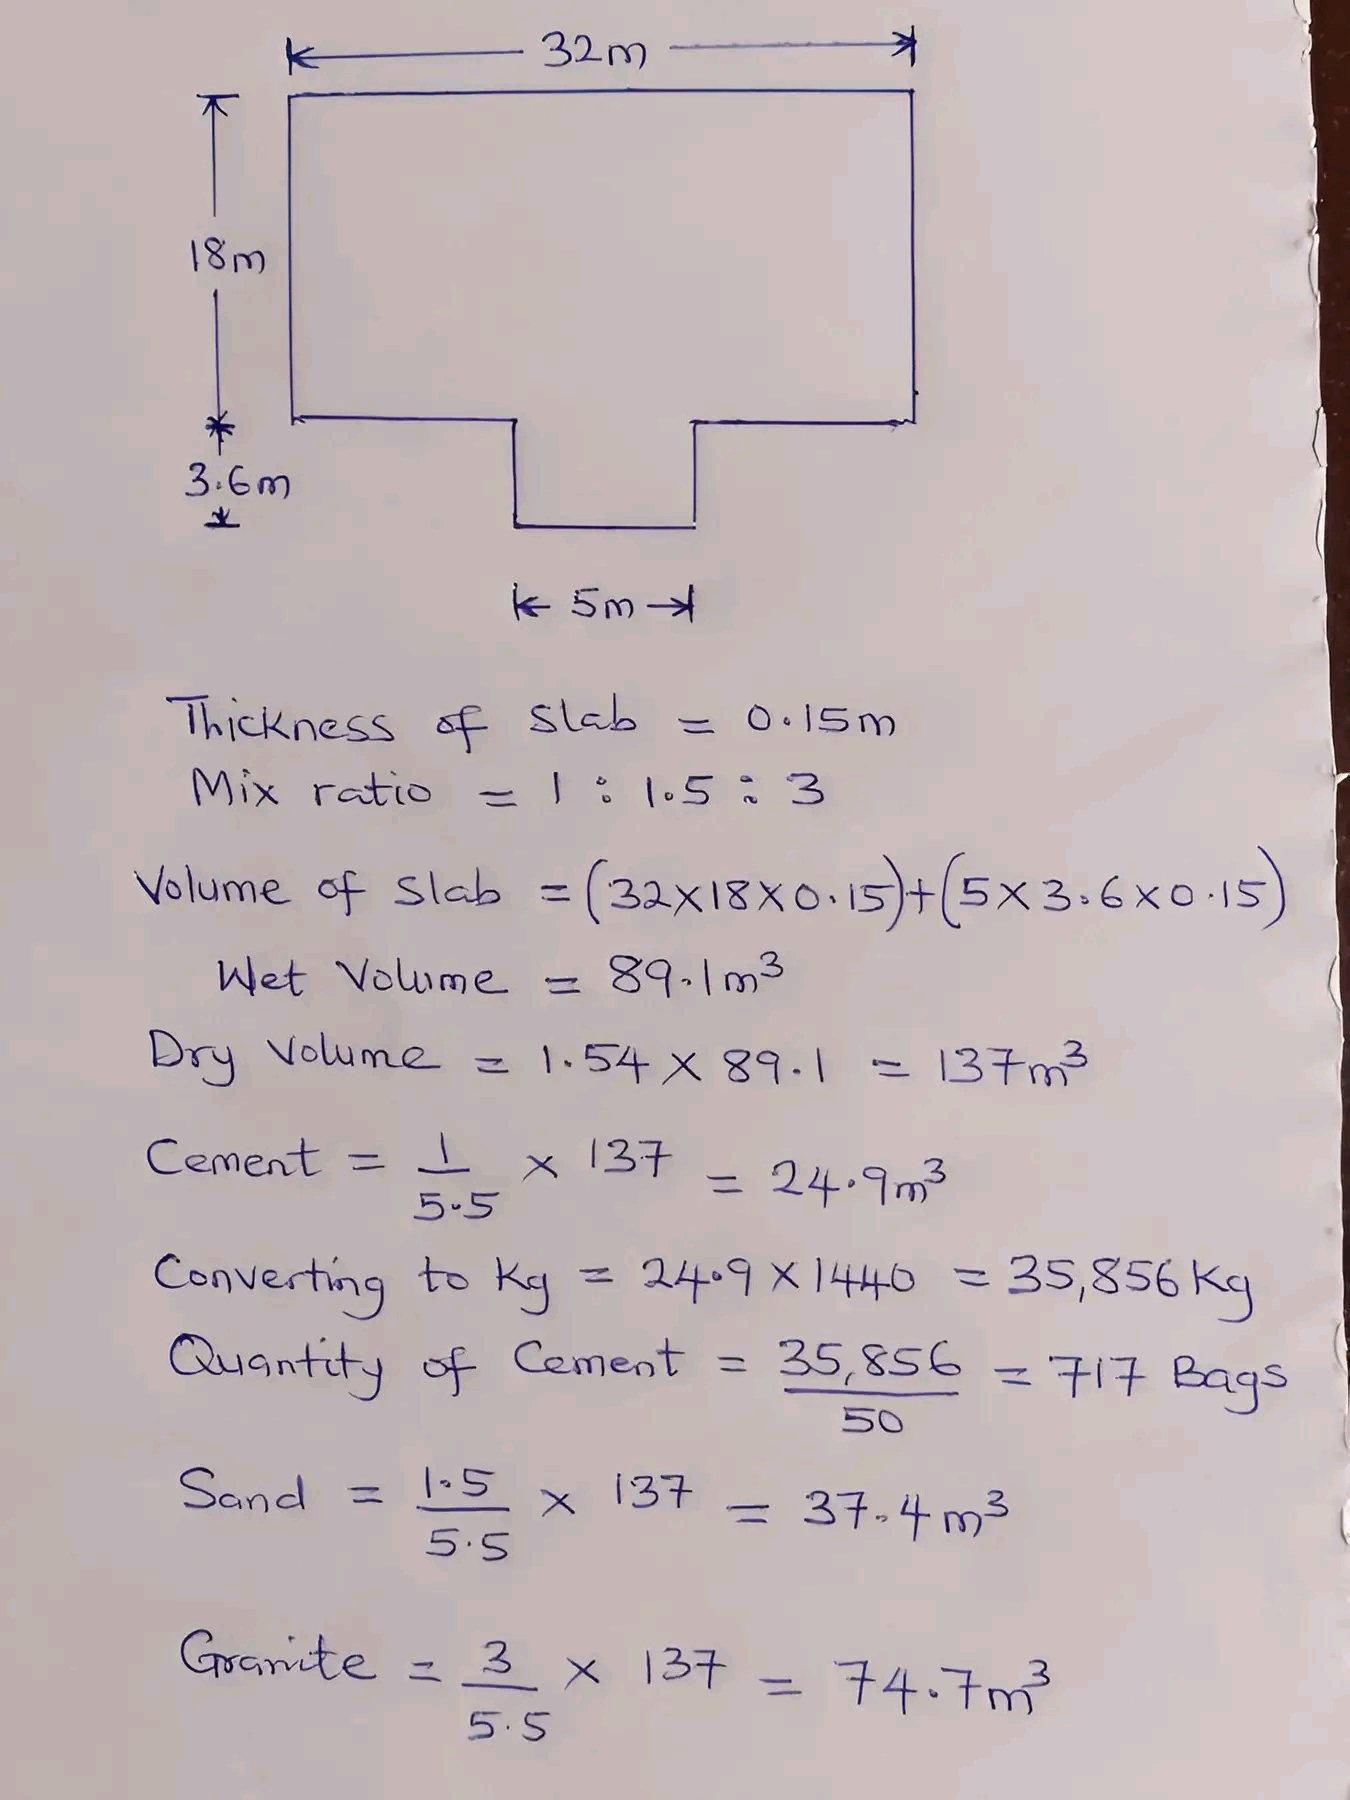 32m
18m
3.6m
5m
Thickness of slab = 0.15m
Mix ratio = 1 : 1.5 : 3
Volume of slab = (32×18×0.15)+(5×3.6×0.15)
Wet Volume = 89.1m³
Dry Volume = 1.54 × 89.1 = 137m³
Cement = 1/5.5 × 137 = 24.9m³
Converting to Kg = 24.9×1440 = 35,856Kg
Quantity of Cement = 35,856/50 = 717 Bags
Sand = 1.5/5.5 × 137 = 37.4m³
Granite = 3/5.5 × 137 = 74.7m³